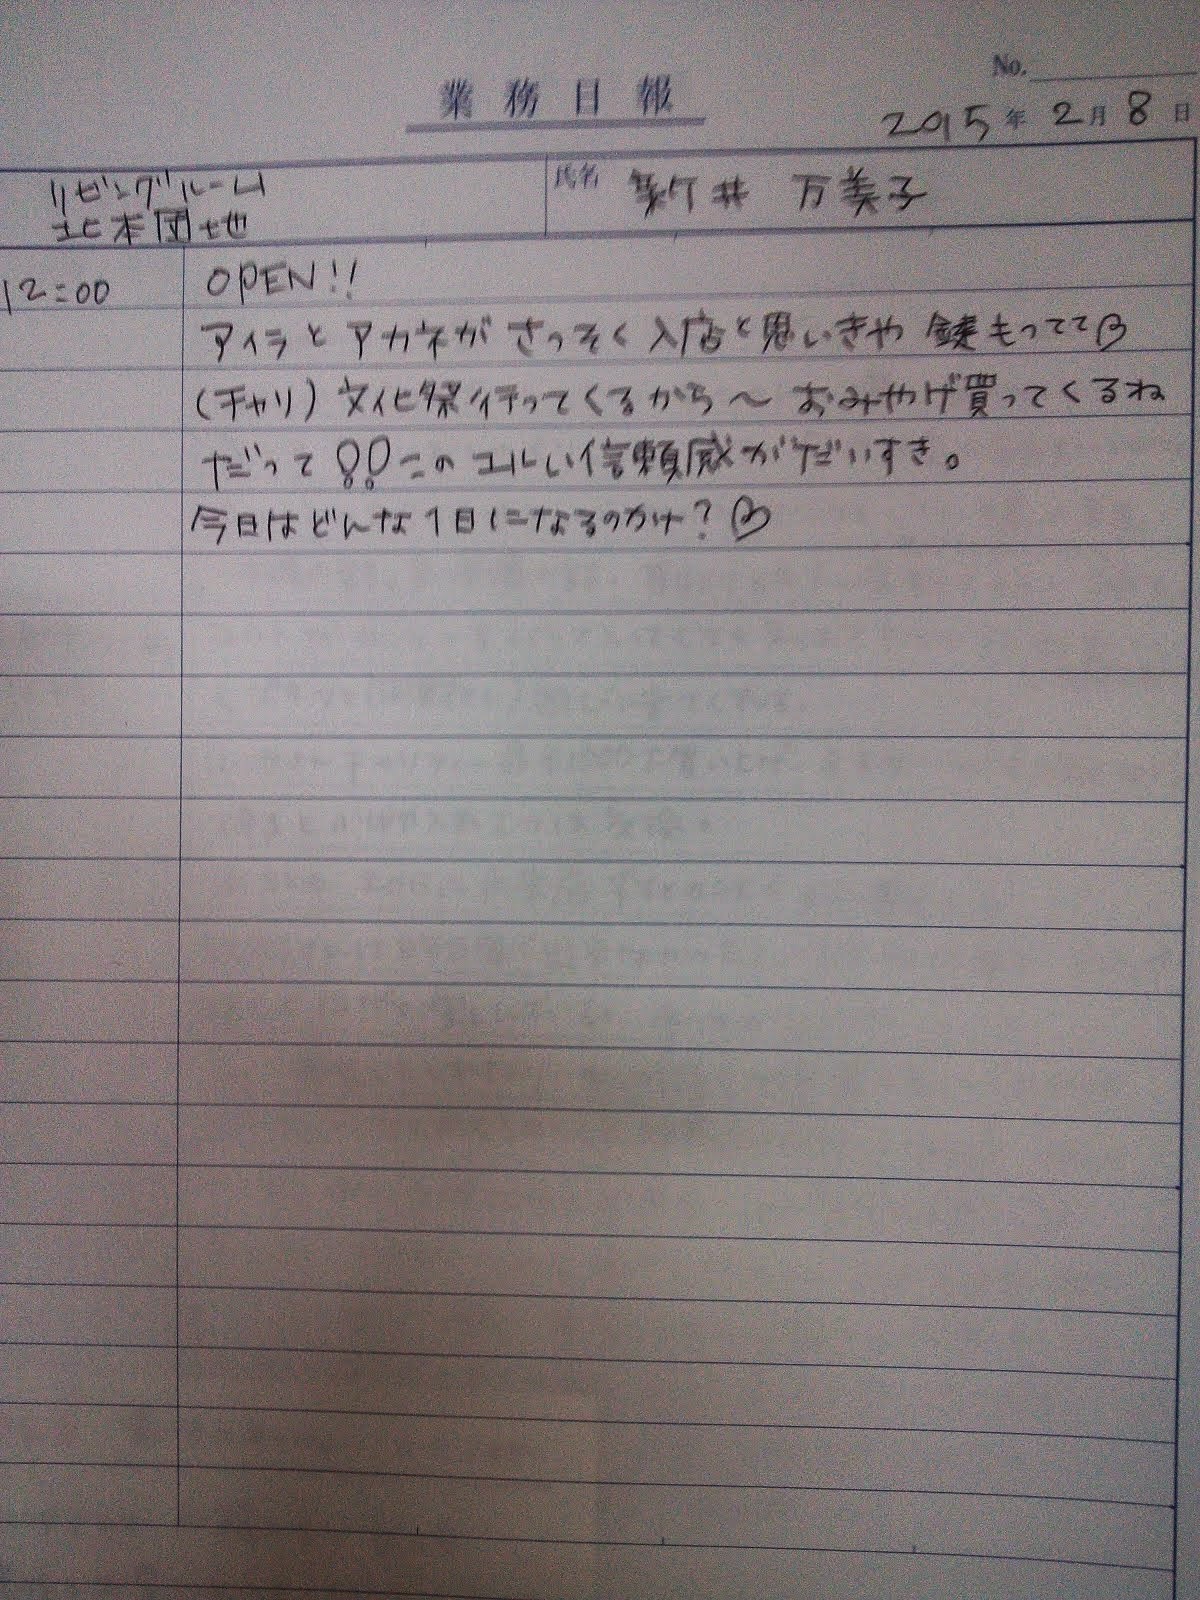 No.
業務日報
2015年2月8日
リビングルーム
北本団地
氏名 井 万美子
12:00 OPEN!!
アイラとアカネがさっそく入店と思いきや 鍵もってて♡
(チャリ) 文化祭行ってくるから〜 おみやげ買ってくるね
だって!! このユルい信頼感がだいすき。
今日はどんな1日になるのかけ?♡